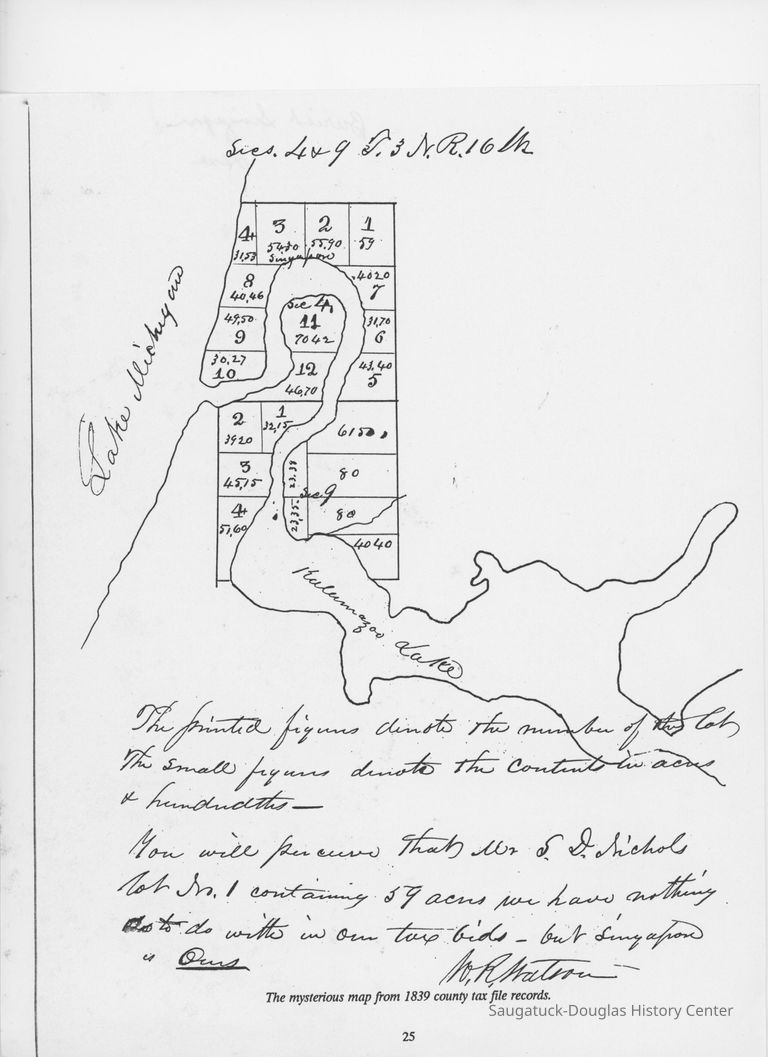 Secs. 4 & 9 T. 3 N. R. 16 W
4 3 2 1
31,53 54,30 55,90 59
Singapore
8 40 20
40,46 7
Sec 4,
49,50 11 31,70
9 70 42 6
30,27 12 43,40
10 46,70 5
Lake Michigan
2 1
39 20 32,15 61 50
3 23,38 80
45,15
Sec 9
4 23,35 80
51,60
40 40
Kalamazoo Lake
The printed figures denote the number of the lot
The small figures denote the contents in acres
& hundredths —
You will perceive that Mr S. D. Nichols
lot No. 1 containing 59 acres we have nothing
to do with in our tax bids – but Singapore
is Ours
W. R. Watson
The mysterious map from 1839 county tax file records.
Saugatuck-Douglas History Center
25